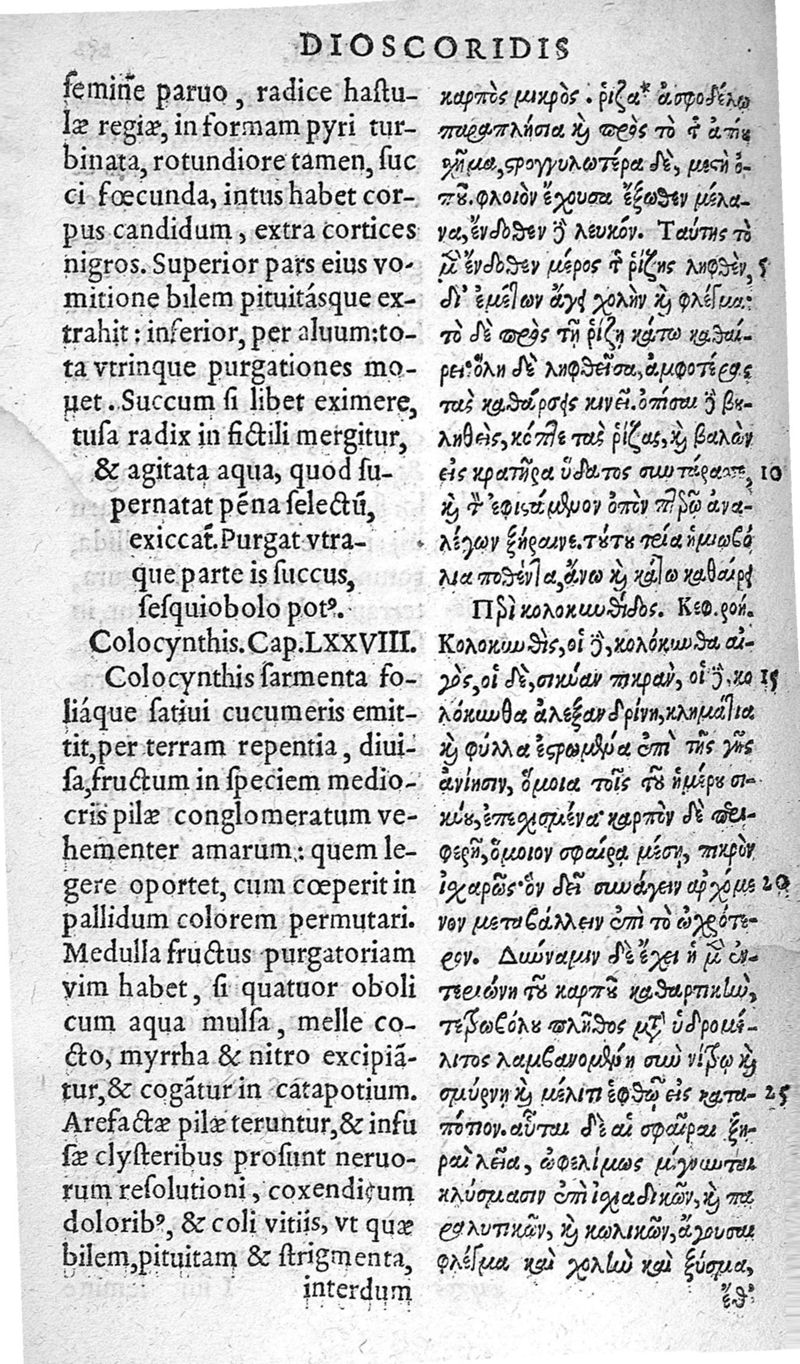 DIOSCORIDIS
semin̄e paruo, radice hastu-
læ regiæ, in formam pyri tur-
binata, rotundiore tamen, suc
ci fœcunda, intus habet cor-
pus candidum, extra cortices
nigros. Superior pars eius vo-
mitione bilem pituitásque ex-
trahit: inferior, per aluum: to-
ta vtrinque purgationes mo-
uet. Succum si libet eximere,
tusa radix in fictili mergitur,
& agitata aqua, quod su-
pernatat pēna selectū,
exiccat̄. Purgat vtra-
que parte is succus,
sesquiobolo potꝰ.
Colocynthis. Cap. LXXVIII.
Colocynthis sarmenta fo-
liáque satiui cucumeris emit-
tit, per terram repentia, diui-
sa, fructum in speciem medio-
cris pilæ conglomeratum ve-
hementer amarum: quem le-
gere oportet, cum cœperit in
pallidum colorem permutari.
Medulla fructus purgatoriam
vim habet, si quatuor oboli
cum aqua mulsa, melle co-
cto, myrrha & nitro excipiā-
tur, & cogātur in catapotium.
Arefactæ pilæ teruntur, & infu
sæ clysteribus prosunt neruo-
rum resolutioni, coxendicum
doloribꝰ, & coli vitiis, vt quæ
bilem, pituitam & strigmenta,
interdum
καρπὸς μικρὸς. ῥίζα* ἀσφοδέλῳ
παραπλήσια ϗ πρὸς τὸ τ̃ ἀπίου
χῆμα, ςρογγυλωτέρα δὲ, μεςὴ ὀ-
ποῦ. φλοιὸν ἔχουσα ἔξωθεν μέλα-
να, ἔνδοθεν δὲ λευκόν. Ταύτης τὸ
μ̃ ἔνδοθεν μέρος τ̃ ῥίζης ληφθὲν, 5
δι' ἐμέτων ἄγει χολὴν ϗ φλέγμα:
τὸ δὲ πρὸς τῇ ῥίζῃ κάτω καθαί-
ρει· ὅλη δὲ ληφθεῖσα, ἀμφοτέρας
τὰς καθάρσεις κινεῖ. ὀπίσαι δὲ βου-
ληθεὶς, κόπτε τὰς ῥίζας, ϗ βαλὼν
εἰς κρατῆρα ὕδατος συντάρασσε, 10
ϗ τ̃ ἐφιςάμενον ὀπὸν πτερῷ ἀνα-
λέγων ξήραινε. τούτου τρία ἡμιωβό
λια ποθέντα, ἄνω ϗ κάτω καθαίρει
Περὶ κολοκυνθίδος. Κεφ. ροή.
Κολοκυνθὶς, οἱ δὲ, κολόκυνθα αἰ-
γὸς, οἱ δὲ, σικύαν πικρὰν, οἱ δὲ, κο 15
λόκυνθα ἀλεξανδρίνη, κλημάτια
ϗ φύλλα ἐςρωμένα ἐπὶ τῆς γῆς
ἀνίησιν, ὅμοια τοῖς τοῦ ἡμέρου σι-
κύου, ἐπεχισμένα· καρπὸν δὲ περι-
φερῆ, ὅμοιον σφαίρᾳ μέσῃ, πικρὸν
ἰχυρῶς· ὃν δεῖ συνάγειν ἀρχόμε 20
νον μεταβάλλειν ἐπὶ τὸ ὠχρότε-
ρον. Δύναμιν δὲ ἔχει ἡ μ̃ ἐν-
τεριώνη τοῦ καρποῦ καθαρτικὴν,
τετρωβόλου πλῆθος μετ' ὑδρομέ-
λιτος λαμβανομένη σὺν νίτρῳ ϗ
σμύρνῃ ϗ μέλιτι ἑφθῷ εἰς κατα- 25
πότιον. αὗται δὲ αἱ σφαῖραι ξη-
ραὶ λεῖαι, ὠφελίμως μίγνυνται
κλύσμασιν ἐπὶ ἰχιαδικῶν, ϗ πα
ραλυτικῶν, ϗ κωλικῶν, ἄγουσαι
φλέγμα καὶ χολὴν καὶ ξύσμα,
ἔθ'